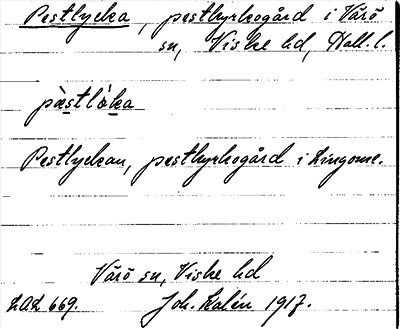 Pestlycka, pestkyrkogård i Värö
sn, Viske hd, Hall. l.
pàstlòka
Pestlyckan, pestkyrkogård i Lingome.
Värö sn, Viske hd
LAL 669. Joh. Kalén 1917.